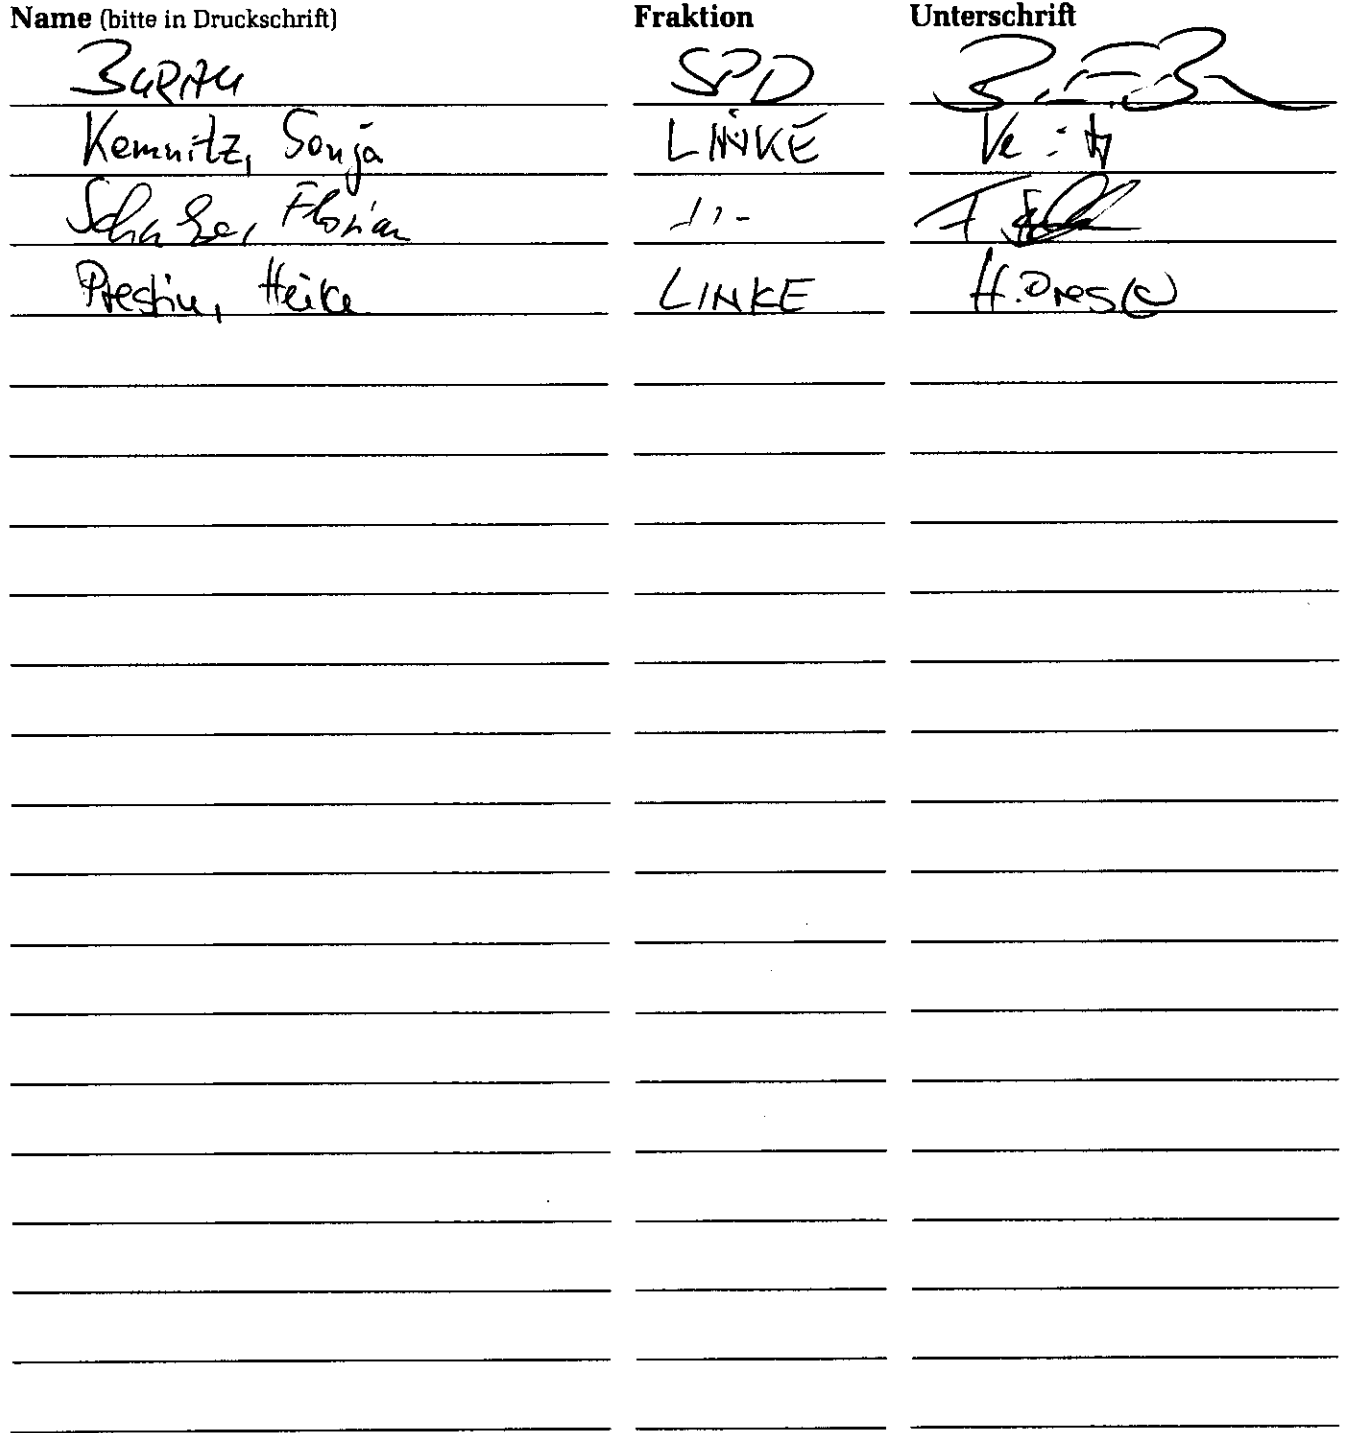 Name (bitte in Druckschrift) Fraktion Unterschrift
BURAU SPD
Kemnitz, Sonja LINKE
Florian -"-
Prestin, Heike LINKE